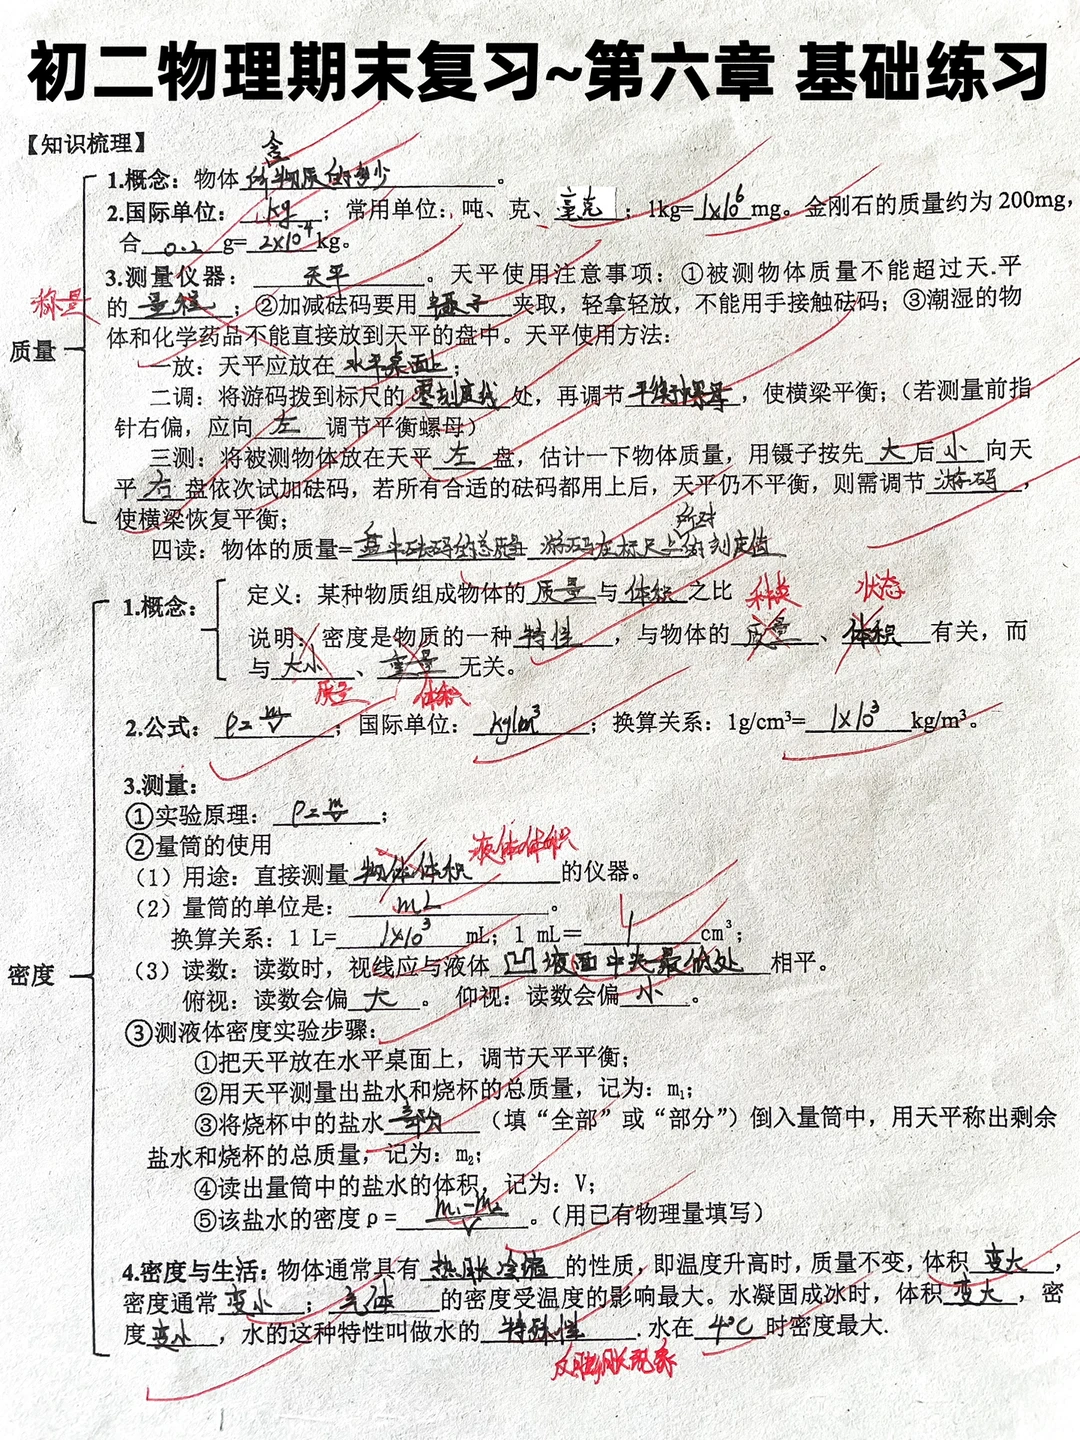 初二物理期末复习~第六章 基础练习
【知识梳理】
含
1.概念：物体 所物质的多少 。
2.国际单位： kg ；常用单位：、吨、克、毫克；1kg= 1×10⁶ mg。金刚石的质量约为 200mg，
合 0.2 g= 2×10⁻⁴ kg。
3.测量仪器： 天平 。天平使用注意事项：①被测物体质量不能超过天.平
称量
的 量程 ；②加减砝码要用 镊子 夹取，轻拿轻放，不能用手接触砝码；③潮湿的物
质量
体和化学药品不能直接放到天平的盘中。天平使用方法：
一放：天平应放在 水平桌面上 ；
二调：将游码拨到标尺的 零刻度线 处，再调节 平衡螺母 ，使横梁平衡；（若测量前指
针右偏，应向 左 调节平衡螺母）
三测：将被测物体放在天平 左 盘，估计一下物体质量，用镊子按先 大 后 小 向天
平 右 盘依次试加砝码，若所有合适的砝码都用上后，天平仍不平衡，则需调节 游码 ，
使横梁恢复平衡；
所对
四读：物体的质量= 砝码的总质量 游码在标尺上的刻度值
1.概念：
定义：某种物质组成物体的 质量 与 体积 之比
种类 状态
说明：密度是物质的一种 特性 ，与物体的 质量 、 体积 有关，而
与 大小 、 重量 无关。
质量 体积
2.公式： ρ=m/V ；国际单位： kg/m³ ；换算关系：1g/cm³= 1×10³ kg/m³。
3.测量：
①实验原理： ρ=m/V ；
②量筒的使用
液体体积
（1）用途：直接测量 物体体积 的仪器。
（2）量筒的单位是： mL 。
换算关系：1 L= 1×10³ mL；1 mL＝ 1 cm³；
密度
（3）读数：读数时，视线应与液体 凹液面中央最低处 相平。
俯视：读数会偏 大 。 仰视：读数会偏 小 。
③测液体密度实验步骤：
①把天平放在水平桌面上，调节天平平衡；
②用天平测量出盐水和烧杯的总质量，记为：m₁；
③将烧杯中的盐水 部分 （填“全部”或“部分”）倒入量筒中，用天平称出剩余
盐水和烧杯的总质量，记为：m₂；
④读出量筒中的盐水的体积，记为：V；
⑤该盐水的密度ρ= m₁-m₂/V 。（用已有物理量填写）
4.密度与生活：物体通常具有 热胀冷缩 的性质，即温度升高时，质量不变，体积 变大 ，
密度通常 变小 ； 气体 的密度受温度的影响最大。水凝固成冰时，体积 变大 ，密
度 变小 ，水的这种特性叫做水的 特殊性 .水在 4℃ 时密度最大.
反膨胀现象